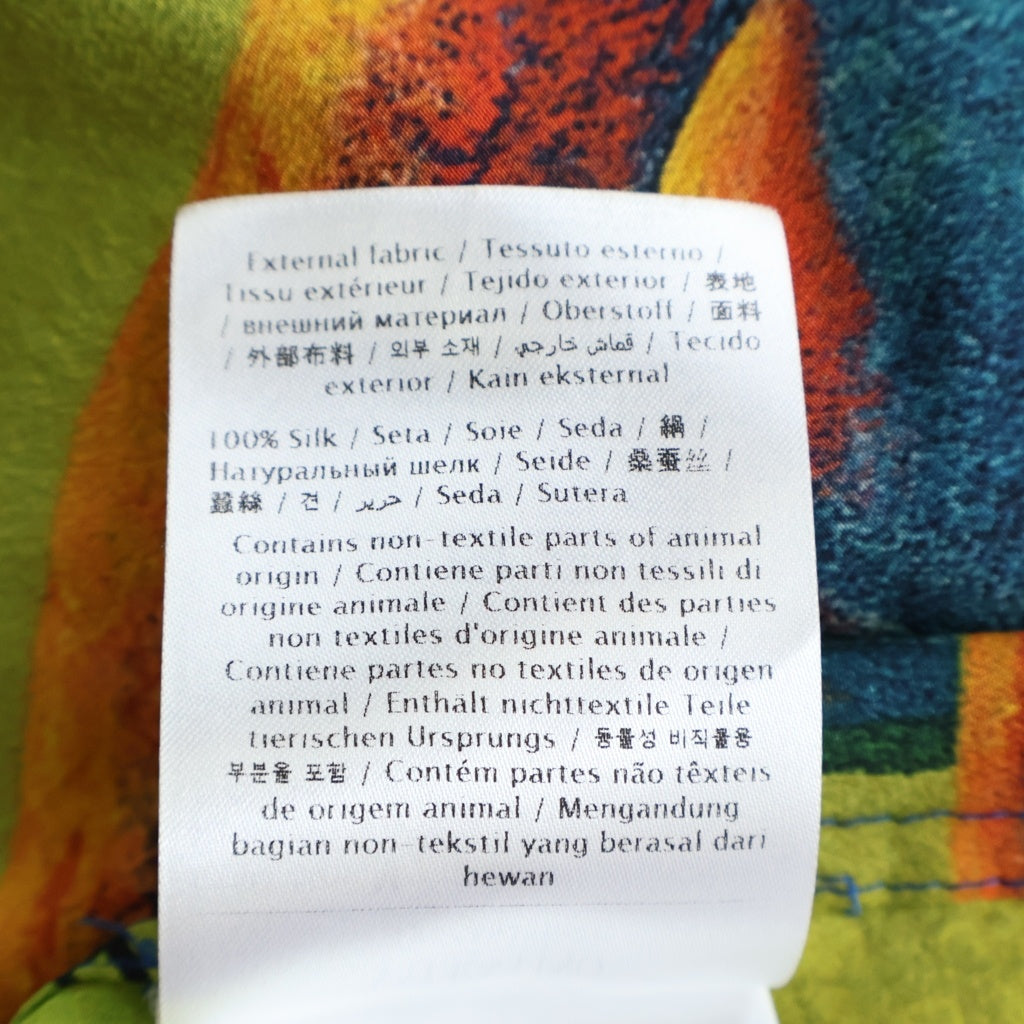 External fabric / Tessuto esterno /
Tissu extérieur / Tejido exterior / 表地
/ внешний материал / Oberstoff / 面料
/ 外部布料 / 외부 소재 / قماش خارجي / Tecido
exterior / Kain eksternal
100% Silk / Seta / Soie / Seda / 絹 /
Натуральный шелк / Seide / 桑蚕丝 /
蠶絲 / 견 / حرير / Seda / Sutera
Contains non-textile parts of animal
origin / Contiene parti non tessili di
origine animale / Contient des parties
non textiles d'origine animale /
Contiene partes no textiles de origen
animal / Enthält nichttextile Teile
tierischen Ursprungs / 동물성 비직물용
부분을 포함 / Contém partes não têxteis
de origem animal / Mengandung
bagian non-tekstil yang berasal dari
hewan